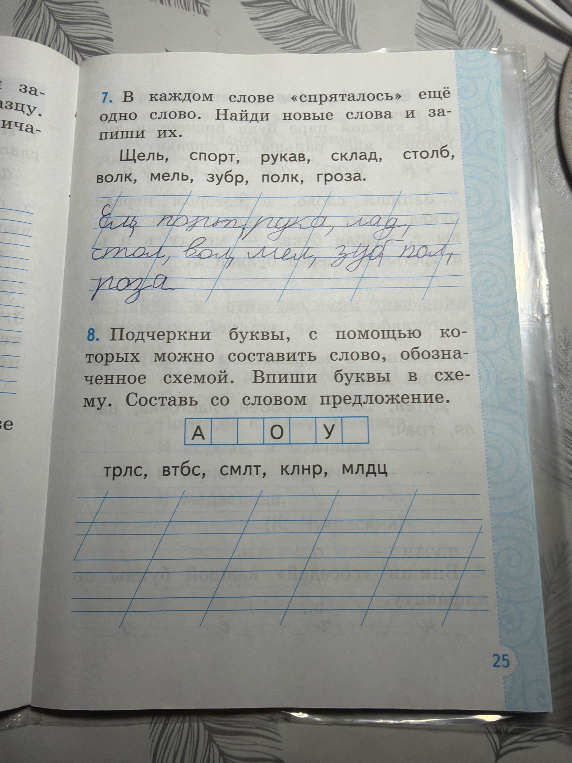 за-
азцу.
ича-
7. В каждом слове «спряталось» ещё
одно слово. Найди новые слова и за-
пиши их.
Щель, спорт, рукав, склад, столб,
волк, мель, зубр, полк, гроза.
Ель, порт, рука, лад,
стол, вол, мел, зуб, пол,
роза.
8. Подчеркни буквы, с помощью ко-
торых можно составить слово, обозна-
ченное схемой. Впиши буквы в схе-
му. Составь со словом предложение.
А О У
трлс, втбс, смлт, клнр, млдц
25